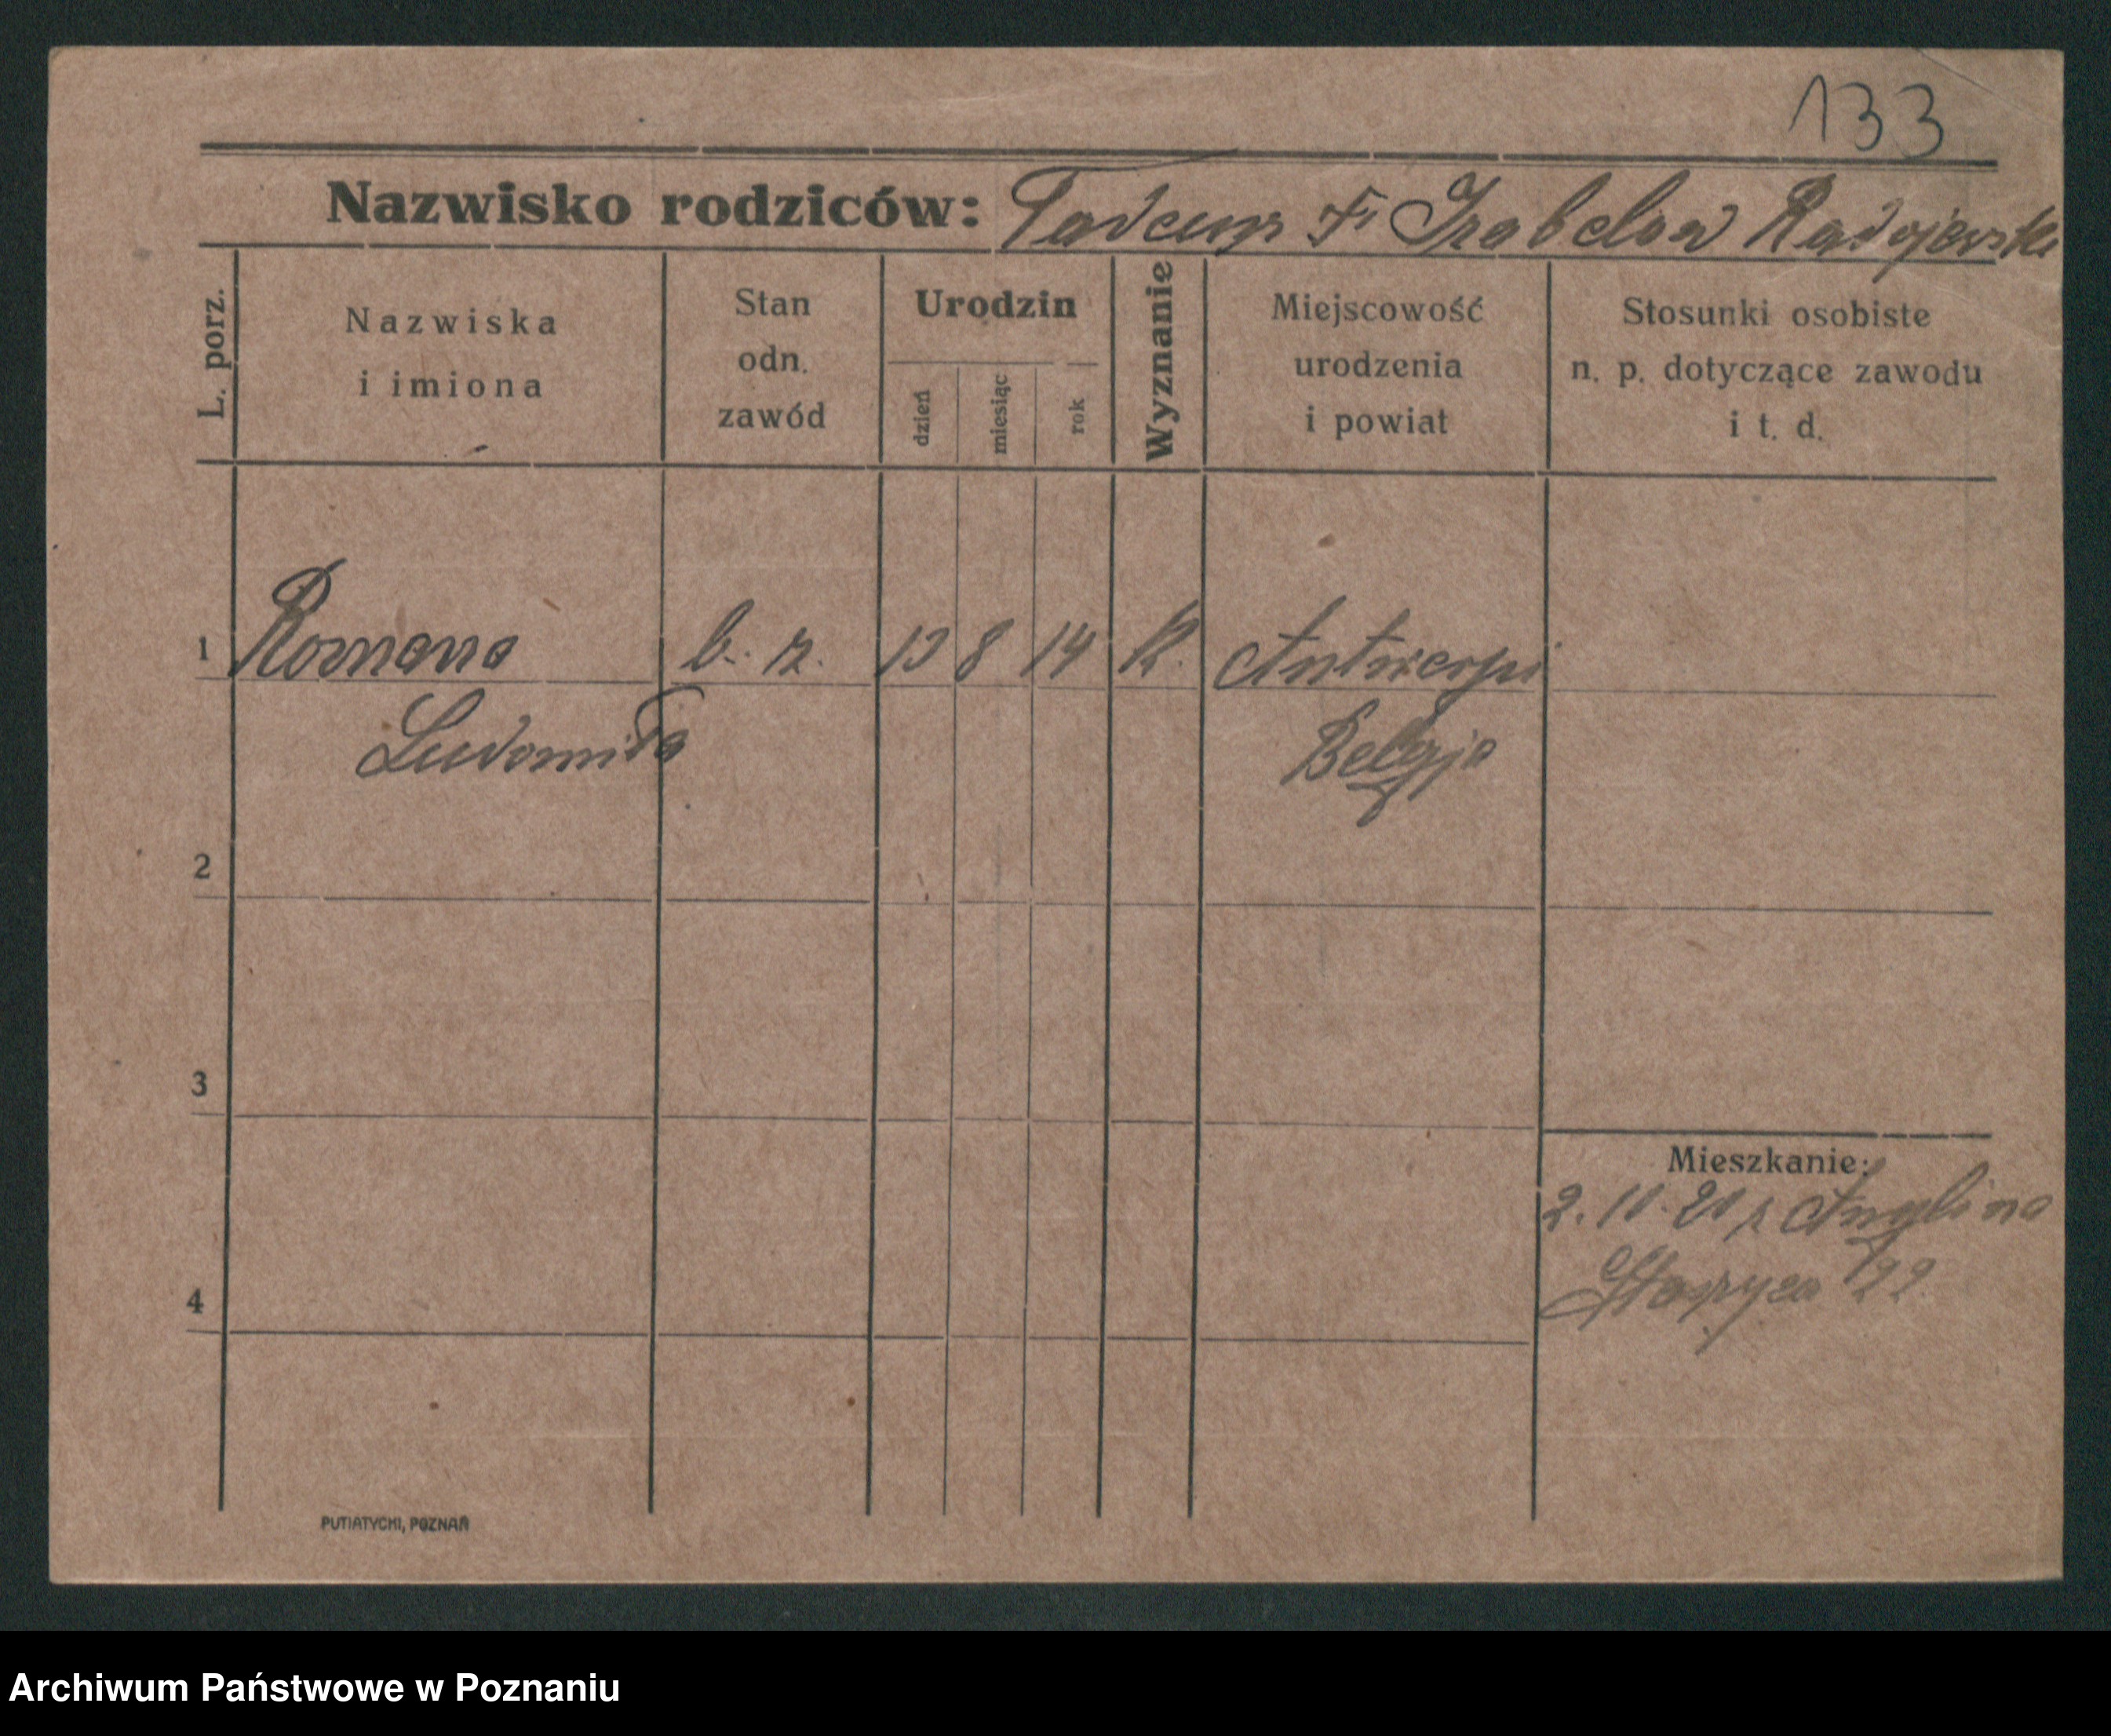 133
Nazwisko rodziców: Tadeusz Fr Izabela Radojewski
L. porz.
Nazwiska
i imiona
Stan
odn.
zawód
Urodzin
dzień
miesiąc
rok
Wyznanie
Miejscowość
urodzenia
i powiat
Stosunki osobiste
n. p. dotyczące zawodu
i t. d.
1 Romana b. z. 13 8 14 k. Antwerpi
Ludomiła Belgja
2
3
Mieszkanie:
2. 11. 21 z
4
22
PUTIATYCKI, POZNAŃ
Archiwum Państwowe w Poznaniu